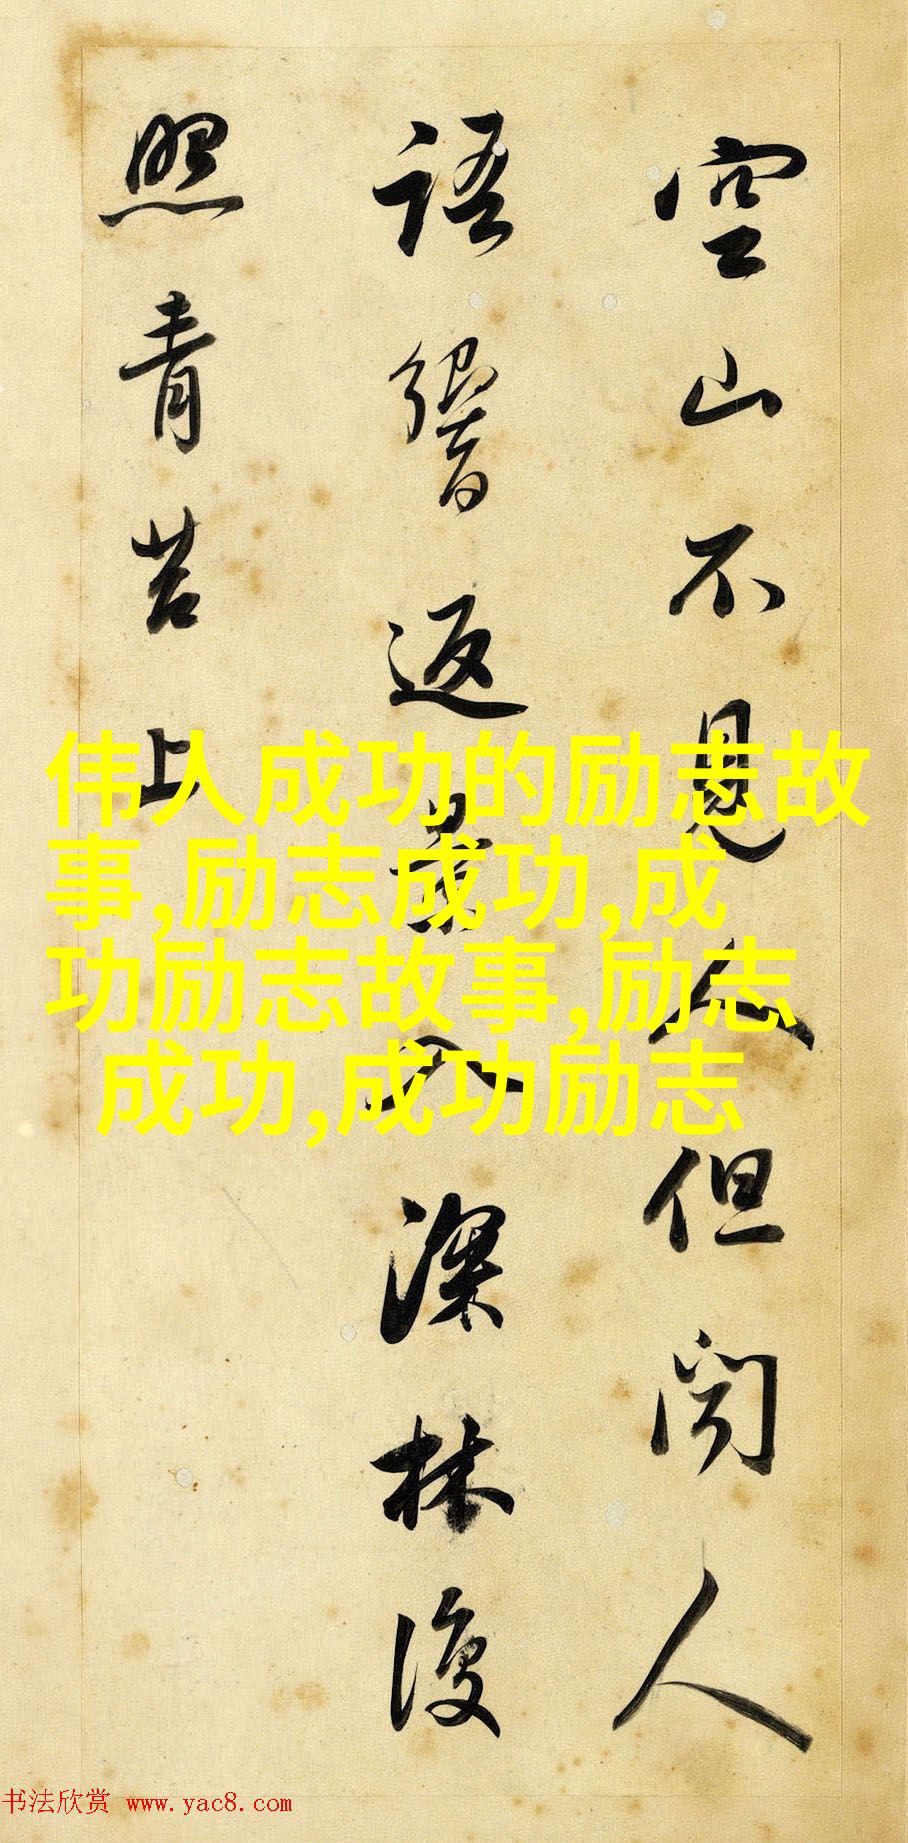 空山不見人但聞人
語響返景入深林復
照青苔上
伟人成功的励志故
事,励志成功,成
功励志故事,励志
成功,成功励志
书法欣赏 www.yac8.com